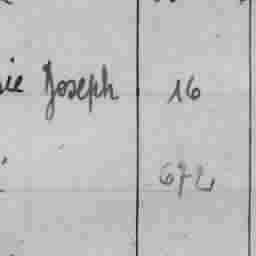 ie Joseph 16
672